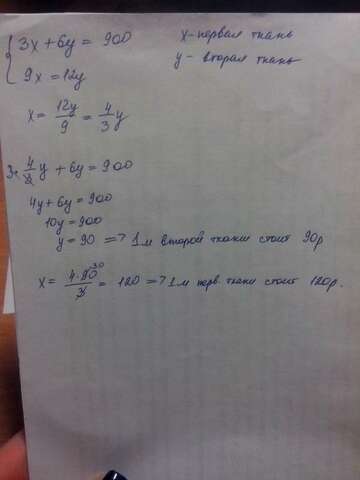 { 3x + 6y = 900
9x = 12y
x - первая ткань
y - вторая ткань
x = 12y/9 = 4/3 y
3 · 4/3 y + 6y = 900
4y + 6y = 900
10y = 900
y = 90 => 1 м второй ткани стоит 90 р
x = 4·90/3 = 120 => 1 м перв. ткани стоит 120 р.
30